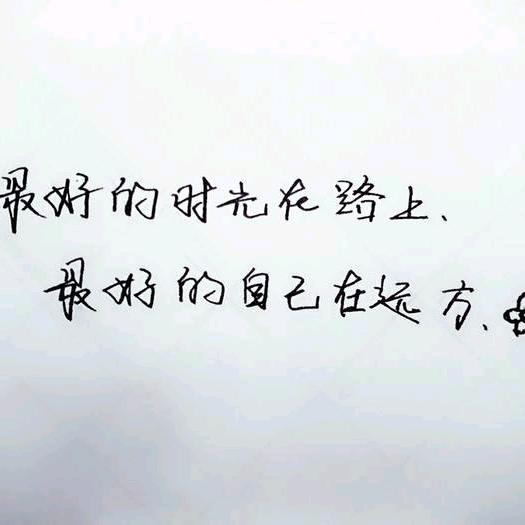 最好的时光在路上、
最好的自己在远方、